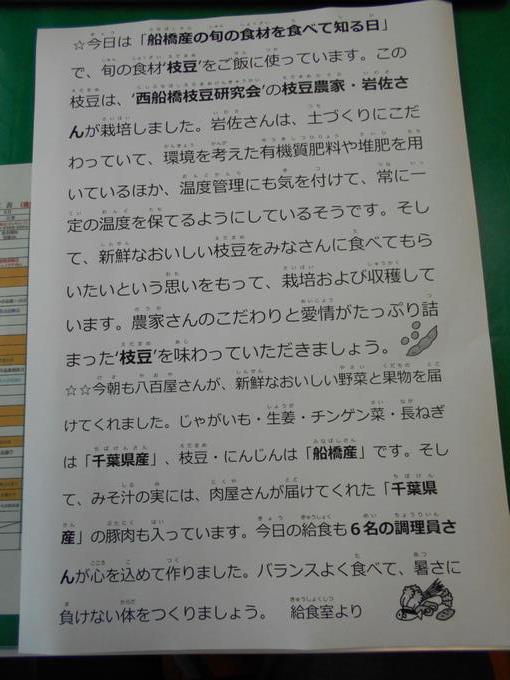 ☆今日は「船橋産の旬の食材を食べて知る日」
で、旬の食材‘枝豆’をご飯に使っています。この
枝豆は、‘西船橋枝豆研究会’の枝豆農家・岩佐さ
んが栽培しました。岩佐さんは、土づくりにこだ
わっていて、環境を考えた有機質肥料や堆肥を用
いているほか、温度管理にも気を付けて、常に一
定の温度を保てるようにしているそうです。そし
て、新鮮なおいしい枝豆をみなさんに食べてもら
いたいという思いをもって、栽培および収穫して
います。農家さんのこだわりと愛情がたっぷり詰
まった‘枝豆’を味わっていただきましょう。
☆☆今朝も八百屋さんが、新鮮なおいしい野菜と果物を届
けてくれました。じゃがいも・生姜・チンゲン菜・長ねぎ
は「千葉県産」、枝豆・にんじんは「船橋産」です。そし
て、みそ汁の実には、肉屋さんが届けてくれた「千葉県
産」の豚肉も入っています。今日の給食も６名の調理員さ
んが心を込めて作りました。バランスよく食べて、暑さに
負けない体をつくりましょう。　給食室より